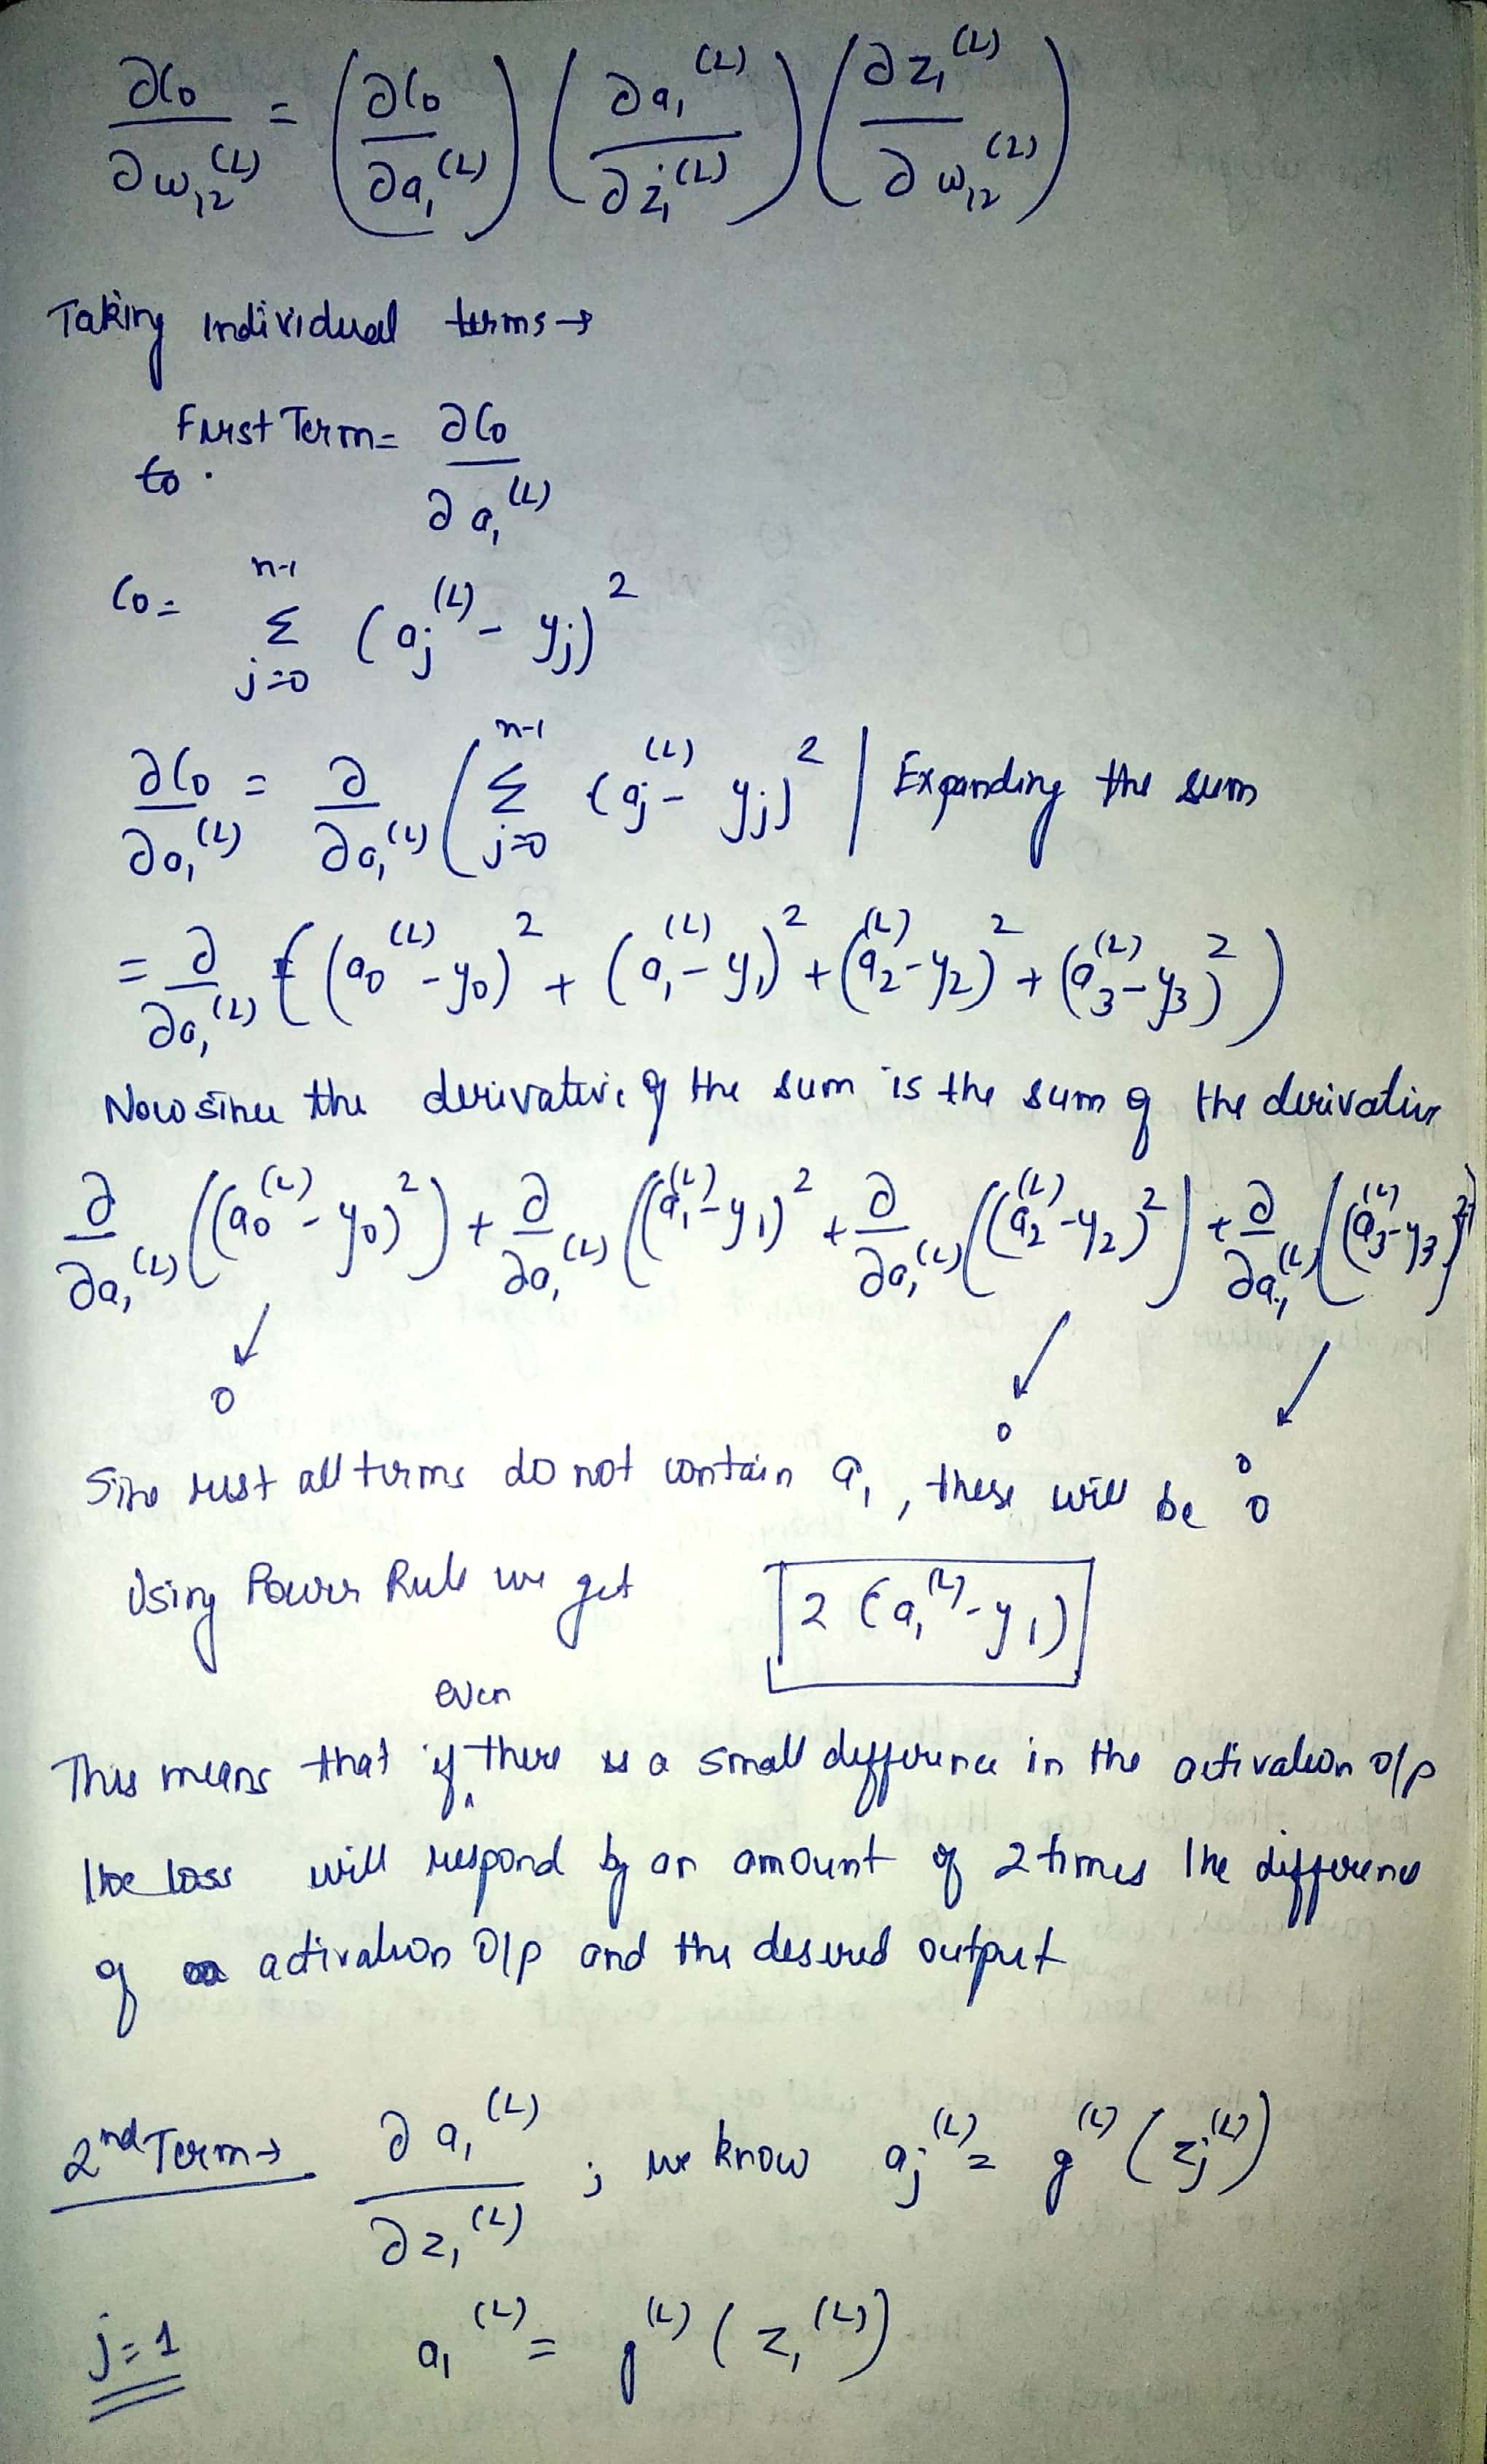 ∂C₀/∂w₁₂^(L) = (∂C₀/∂a₁^(L)) (∂a₁^(L)/∂z₁^(L)) (∂z₁^(L)/∂w₁₂^(L))
Taking individual terms →
First Term = ∂C₀/∂a₁^(L)
C₀ = Σ_{j=0}^{n-1} (aⱼ^(L) - yⱼ)²
∂C₀/∂a₁^(L) = ∂/∂a₁^(L) (Σ_{j=0}^{n-1} (aⱼ^(L) - yⱼ)² | Expanding the sum
= ∂/∂a₁^(L) ((a₀^(L) - y₀)² + (a₁^(L) - y₁)² + (a₂^(L) - y₂)² + (a₃^(L) - y₃)²)
Now since the derivative of the sum is the sum of the derivative
∂/∂a₁^(L) ((a₀^(L) - y₀)²) + ∂/∂a₁^(L) ((a₁^(L) - y₁)² + ∂/∂a₁^(L) ((a₂^(L) - y₂)²) + ∂/∂a₁^(L) ((a₃^(L) - y₃)²)
0 0 0
rest all terms do not contain a₁, these will be 0
Using Power Rule we get 2 (a₁^(L) - y₁)
This means that if even there is a small difference in the activation o/p
the loss will respond by an amount of 2 times the difference
of activation o/p and the desired output
2nd Term → ∂a₁^(L)/∂z₁^(L) ; we know aⱼ^(L) = g^(L) (zⱼ^(L))
j = 1 a₁^(L) = g^(L) (z₁^(L))